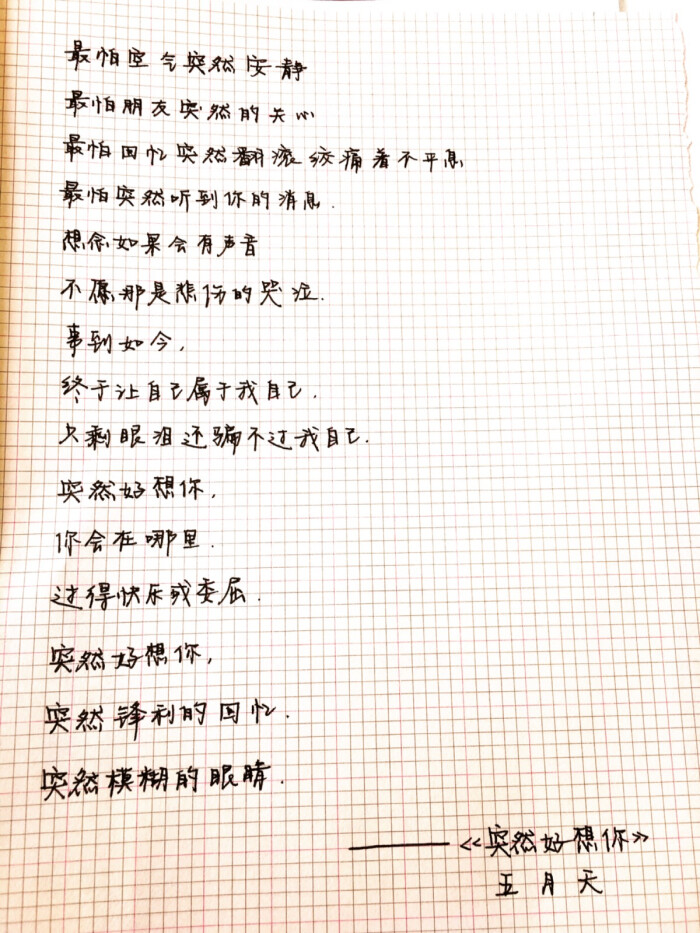 最怕空气突然安静
最怕朋友突然的关心
最怕回忆突然翻滚绞痛着不平息
最怕突然听到你的消息.
想念如果会有声音
不愿那是悲伤的哭泣.
事到如今,
终于让自己属于我自己.
只剩眼泪还骗不过我自己.
突然好想你,
你会在哪里.
过得快乐或委屈.
突然好想你,
突然锋利的回忆.
突然模糊的眼睛.
——《突然好想你》
五月天